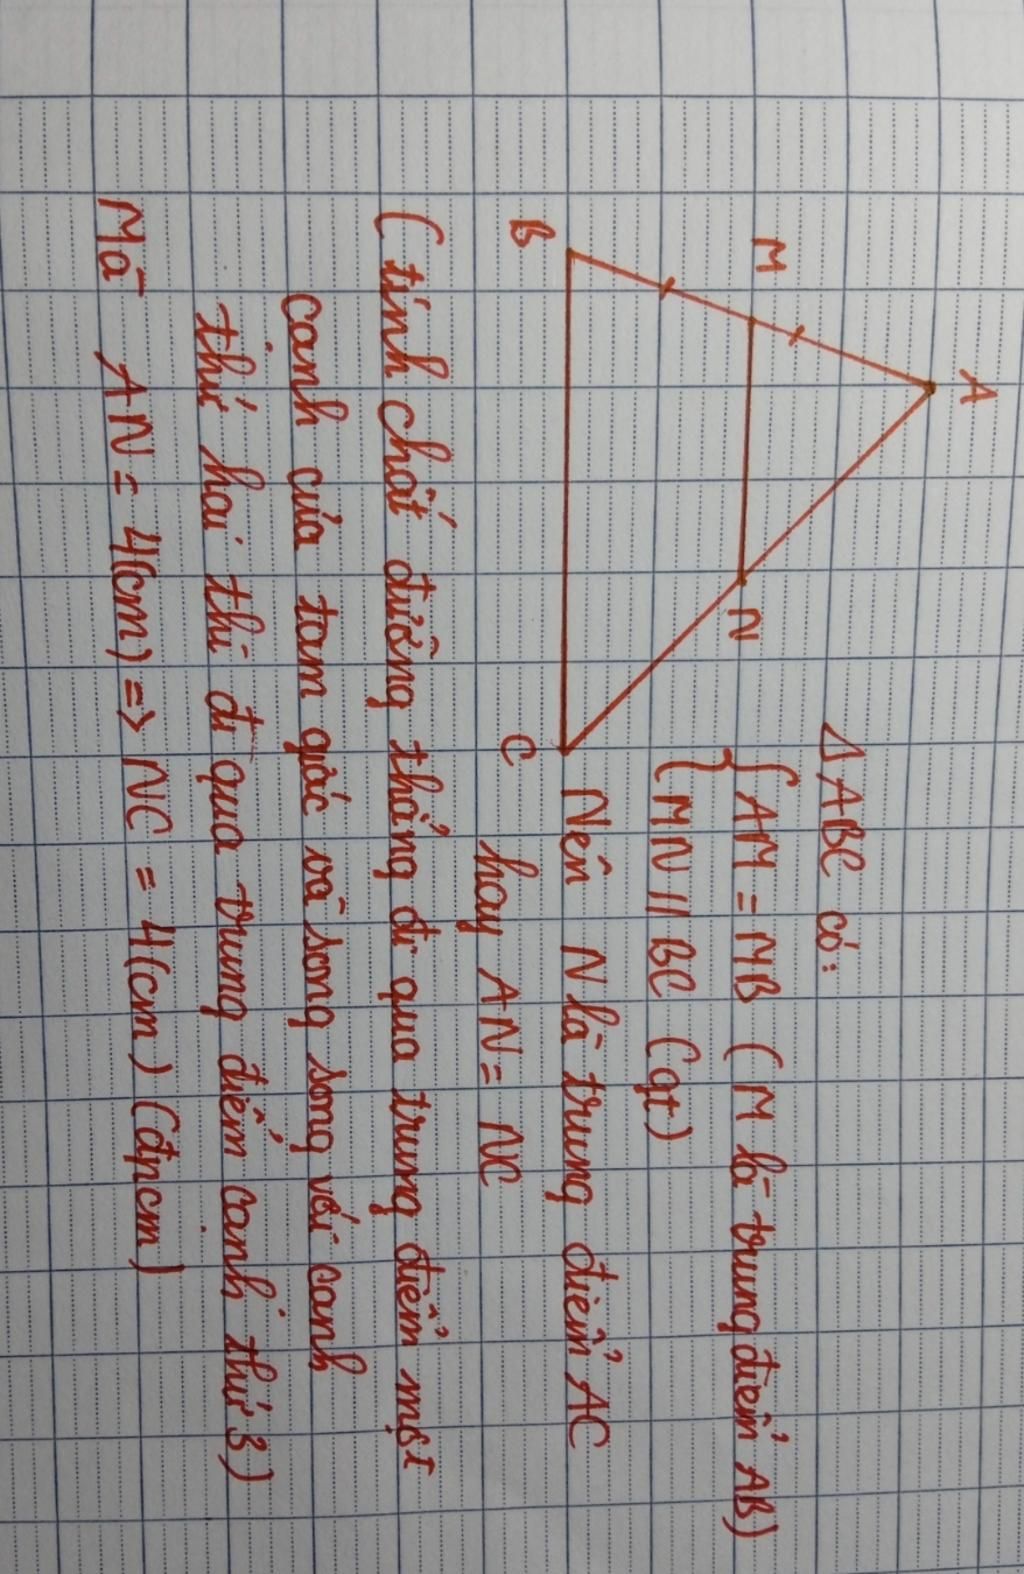 A
M
N
B
C
Δ ABC có:
{ AM = MB ( M là trung điểm AB)
{ MN // BC (gt)
Nên N là trung điểm AC
hay AN = NC
( tính chất đường thẳng đi qua trung điểm một
cạnh của tam giác và song song với cạnh
thứ hai thì đi qua trung điểm cạnh thứ 3)
Mà AN = 4(cm) => NC = 4(cm) (đpcm)